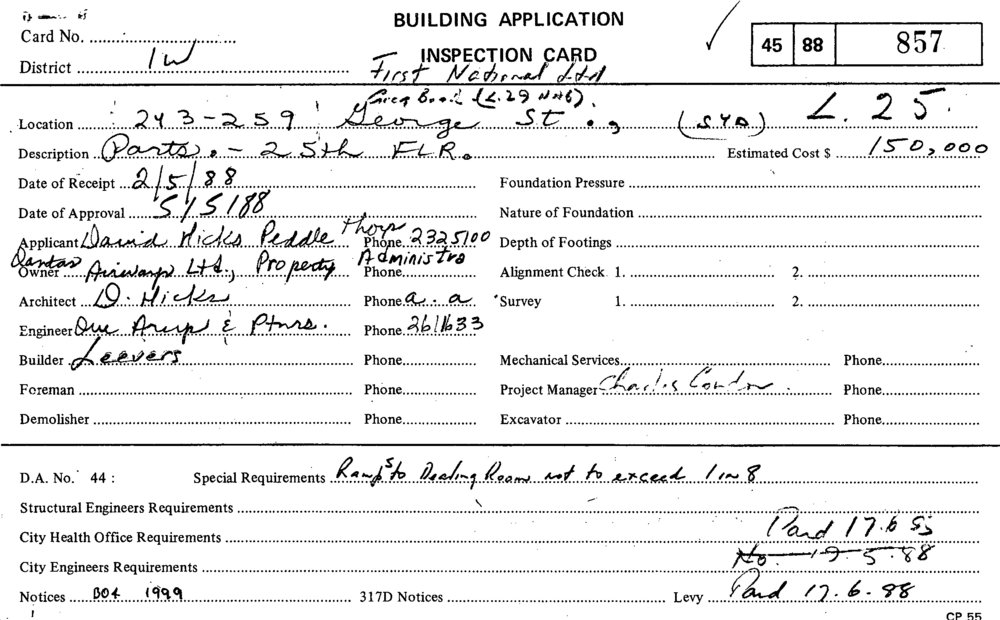 BUILDING APPLICATION
Card No.
INSPECTION CARD
45 88 857
District 1W
First National Ltd
(L.29 NAB).
Location 243-259 George St., (SYD) L. 25
Description Parts. - 25th FLR. Estimated Cost $ 150,000
Date of Receipt 2/5/88 Foundation Pressure
Date of Approval 5/5/88 Nature of Foundation
Applicant David Hicks Peddle Thorp Phone. 2325100 Depth of Footings
Qantas
Owner Airways Ltd., Property Administra Phone Alignment Check 1. 2.
Architect D. Hicks Phone a. a Survey 1. 2.
Engineer Ove Arup & Ptnrs. Phone. 2611633
Builder Leevers Phone Mechanical Services Phone
Foreman Phone Project Manager Charles Phone
Demolisher Phone Excavator Phone
D.A. No. 44 : Special Requirements Ramps to Dealing Room not to exceed 1 in 8
Structural Engineers Requirements
City Health Office Requirements Paid 17.6
City Engineers Requirements No. 19.5.88
Notices BO4 1999 317D Notices Levy Paid 17.6.88
CP 55